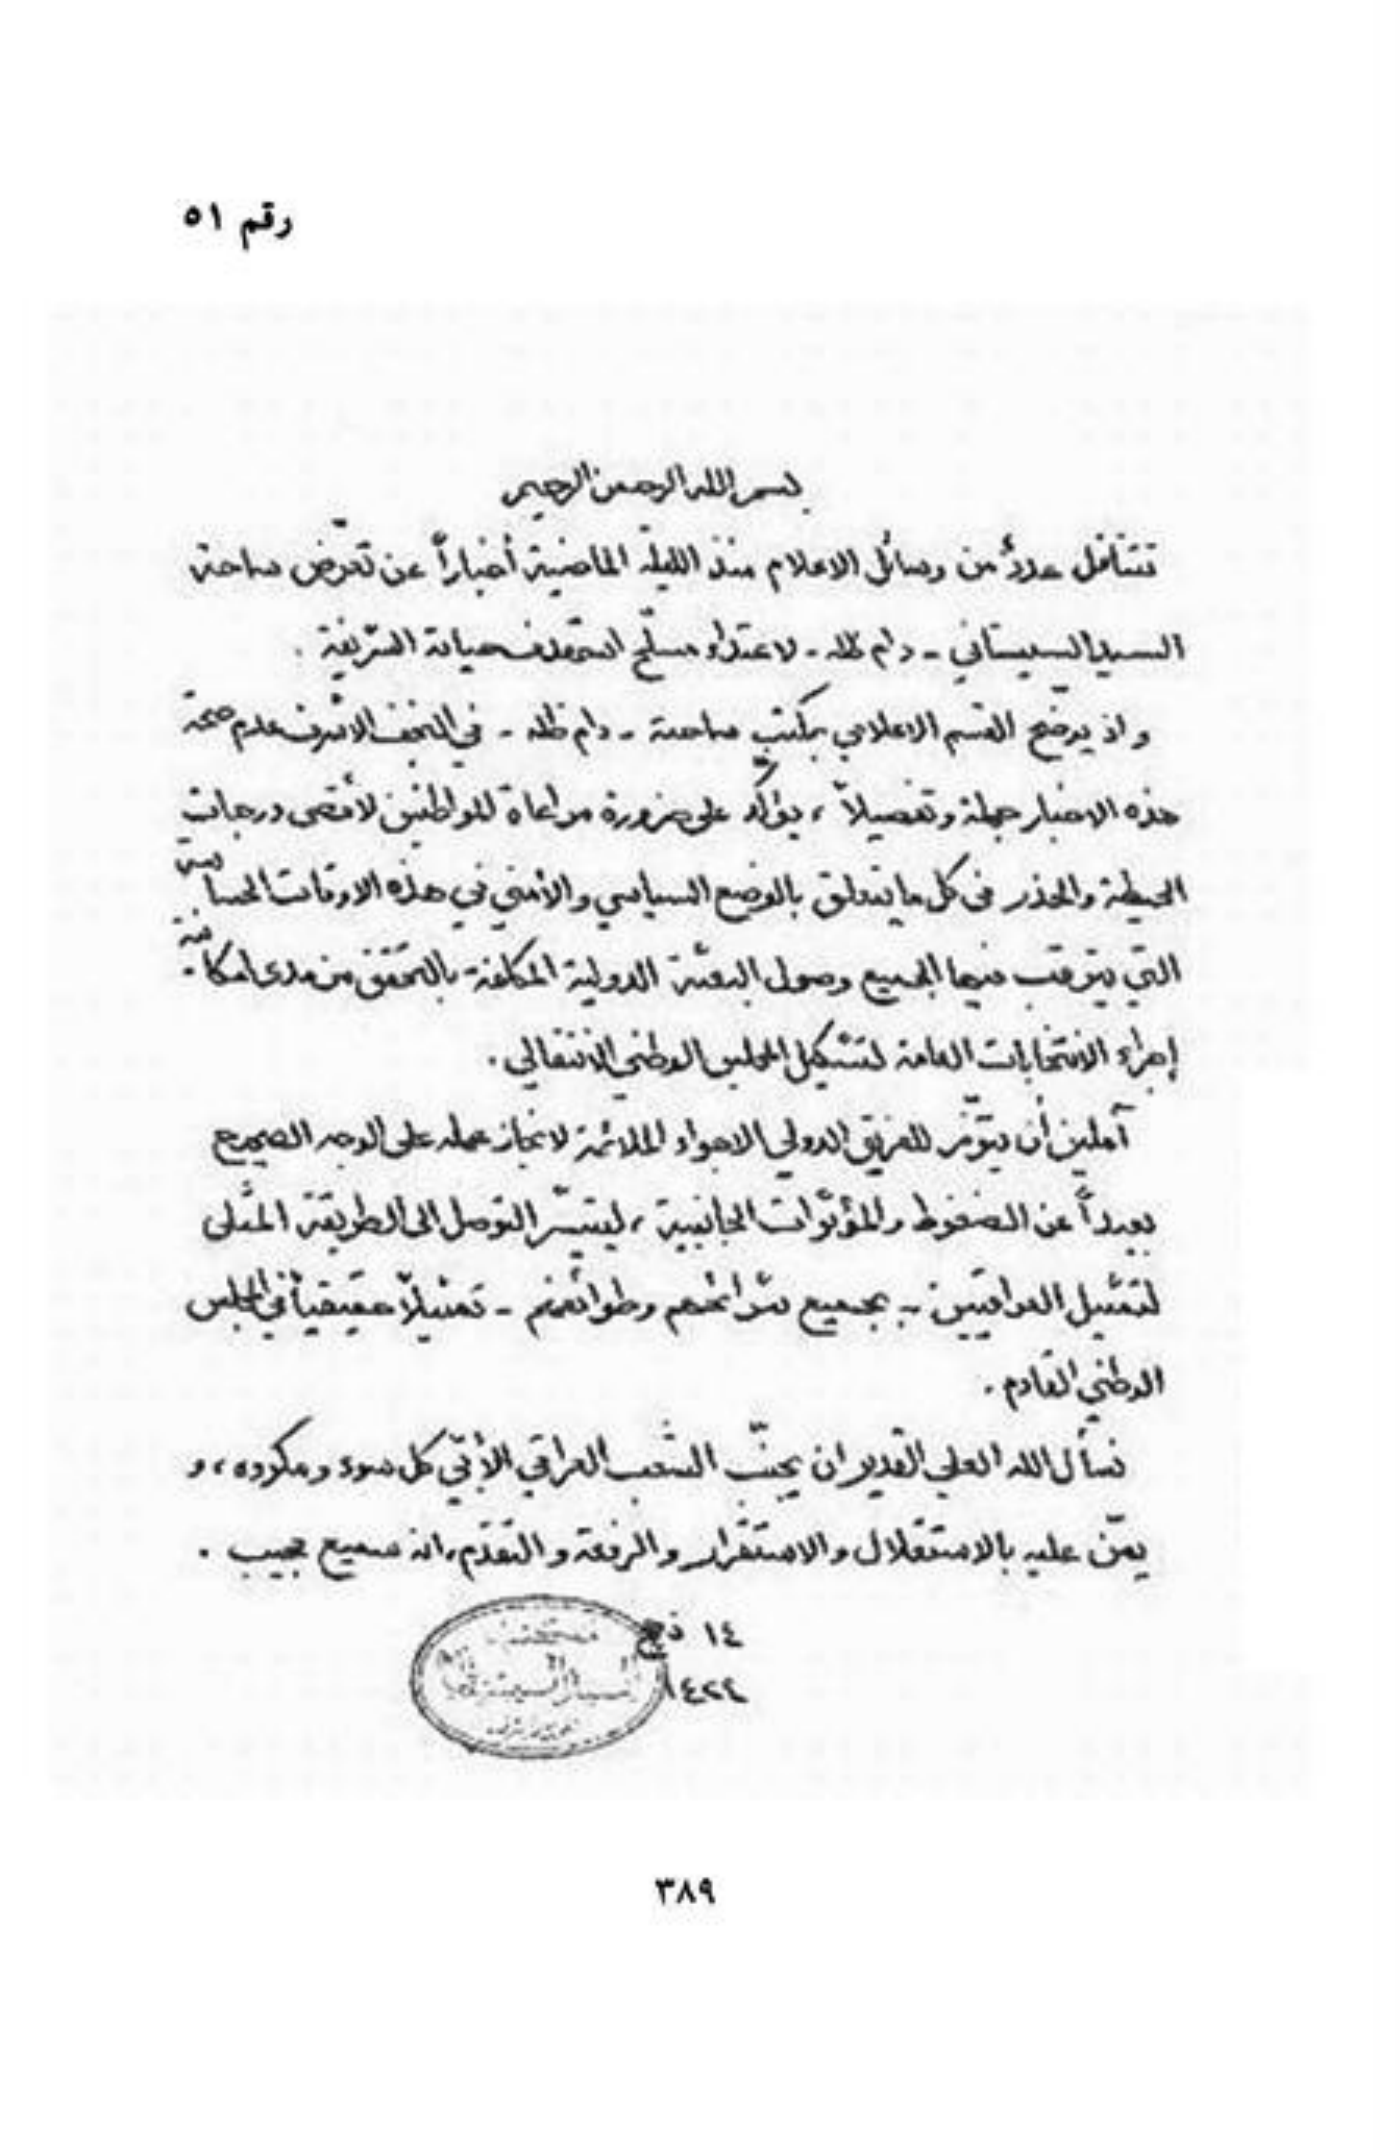 رقم ٥١
بسم الله الرحمن الرحيم
تتناقل عددٌ من وسائل الاعلام منذ الليلة الماضية أخباراً عن تعرّض سماحة
السيد السيستاني - دام ظله - لاعتداء مسلّح استهدف حياته الشريفة .
و اذ يوضّح القسم الاعلامي بمكتب سماحته - دام ظله - في النجف الاشرف عدم صحة
هذه الاخبار جملة وتفصيلاً ، يؤكّد على ضرورة مراعاة المواطنين لأقصى درجات
الحيطة والحذر في كل ما يتعلق بالوضع السياسي والأمني في هذه الاوقات الحساسة
التي يترقب فيها الجميع وصول البعثة الدولية المكلفة بالتحقق من مدى امكانية
إجراء الانتخابات العامة لتشكيل المجلس الوطني الانتقالي .
آملين أن يتوفّر للفريق الدولي الاجواء الملائمة لانجاز عمله على الوجه الصحيح
بعيداً عن الضغوط والمؤثرات الجانبية ، ليتيسّر التوصل الى الطريقة المثلى
لتمثيل العراقيّين - بجميع شرائحهم وطوائفهم - تمثيلاً حقيقياً في المجلس
الوطني القادم .
نسأل الله العلي القدير ان يجنّب الشعب العراقي الأبيّ كل سوء ومكروه ، و
يمنّ عليه بالاستقلال والاستقرار والرفعة والتقدّم ، انه سميع مجيب .
١٤ ذي ح
١٤٢٤
٣٨٩